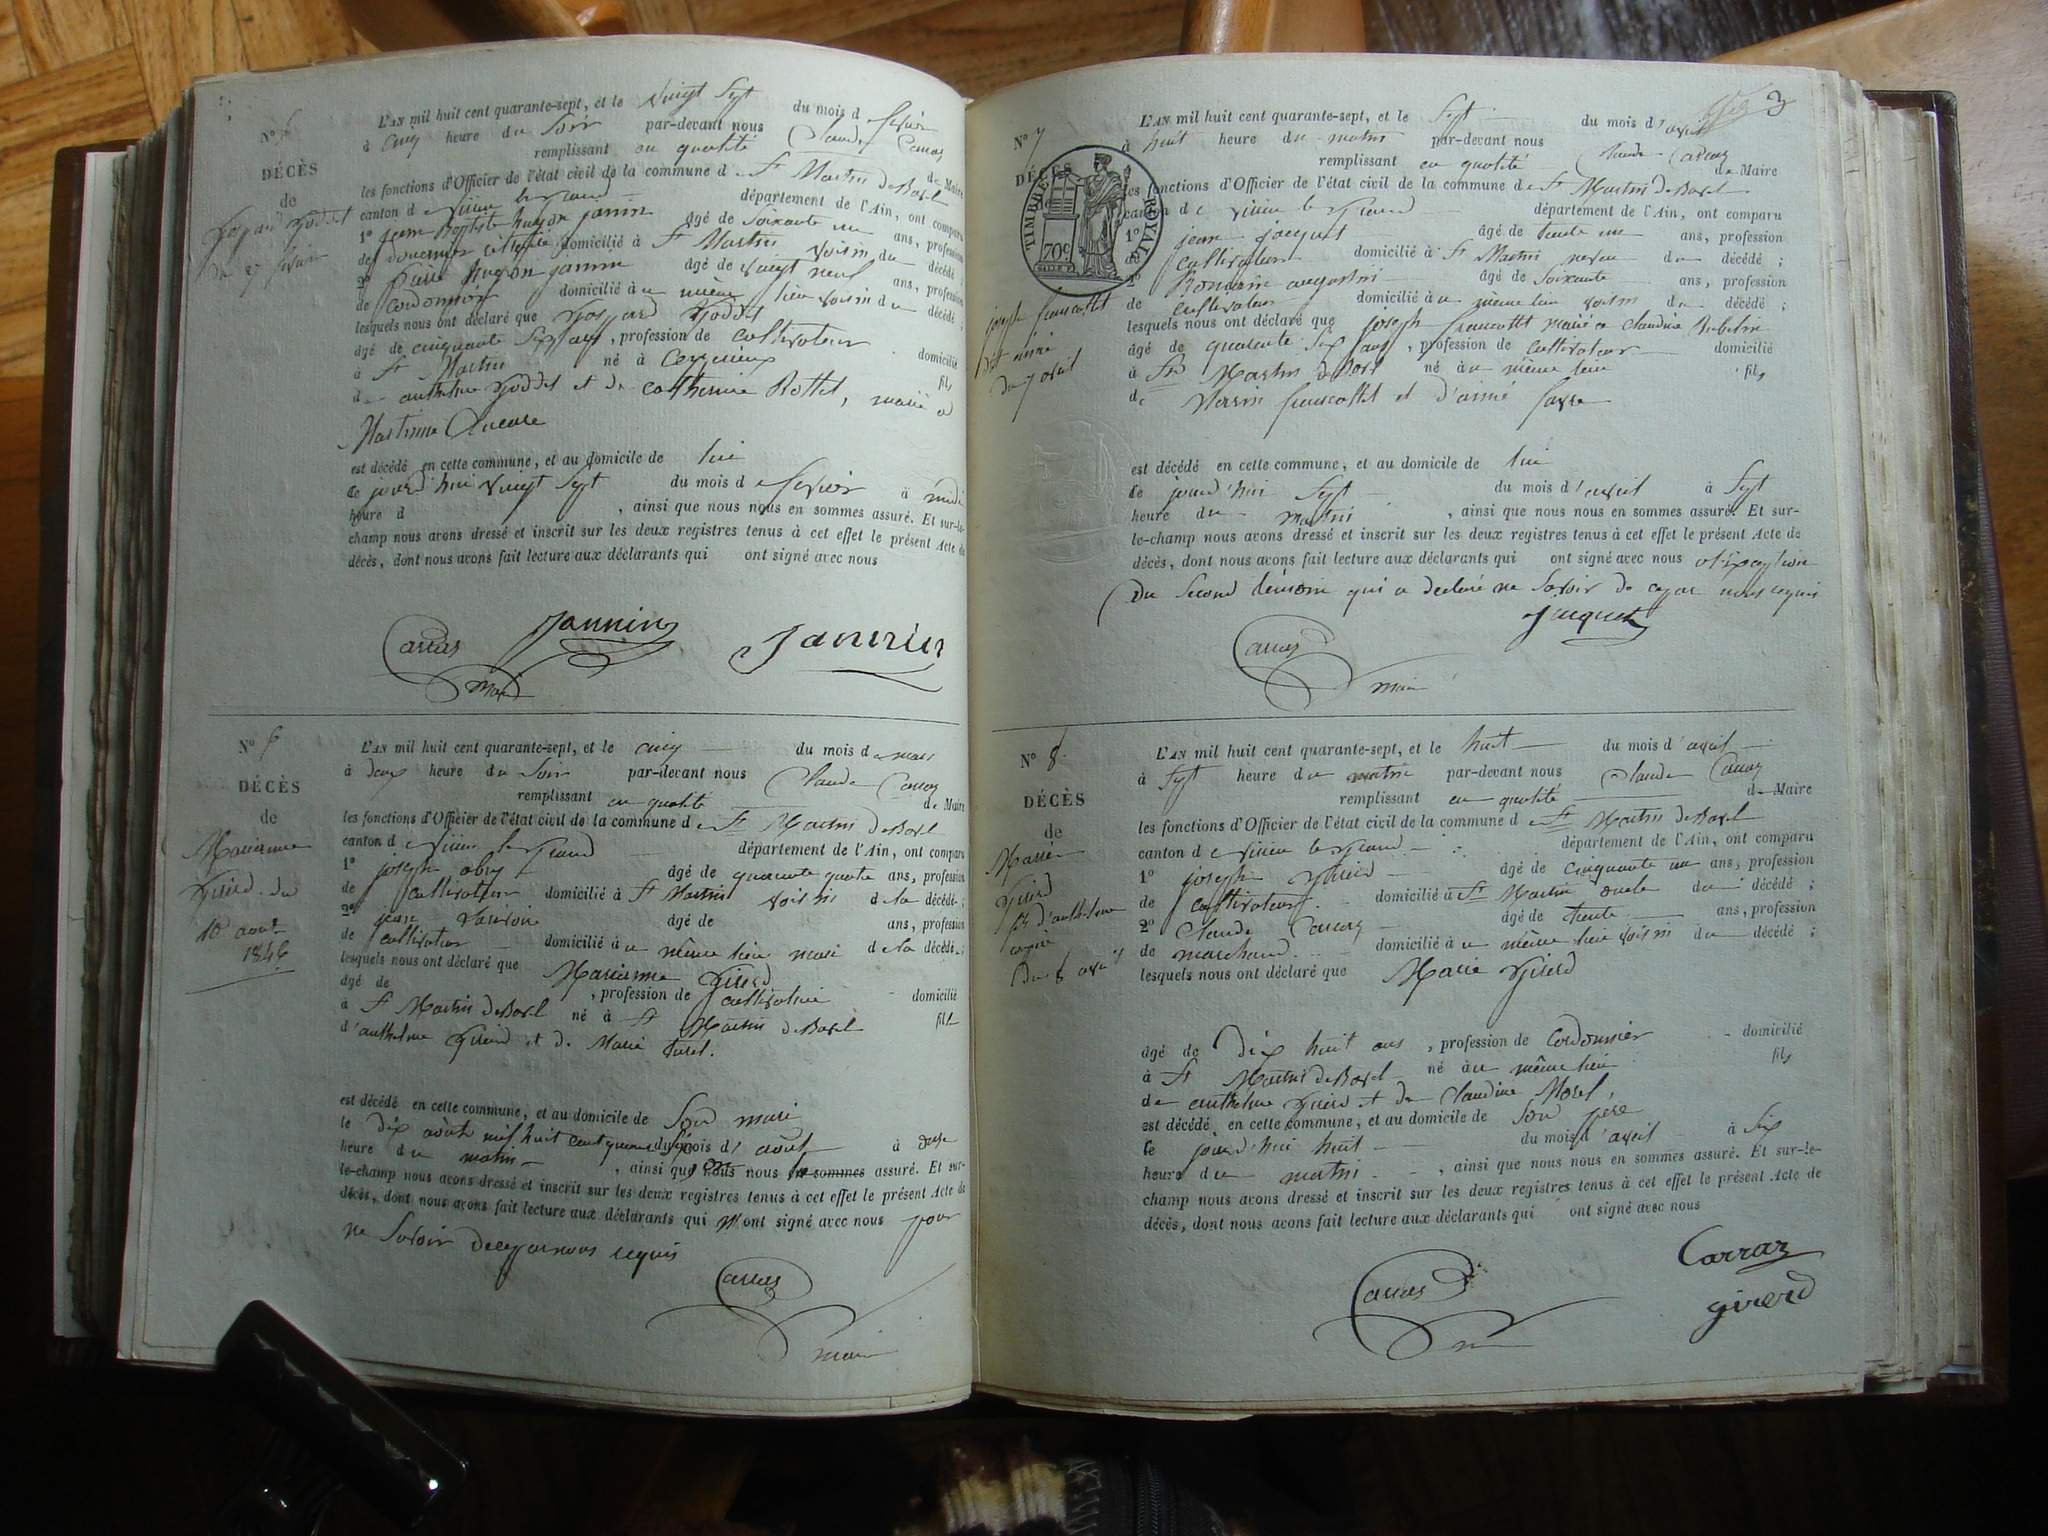 N° 5
DÉCÈS
de
du 27 février
L'AN mil huit cent quarante-sept, et le vingt Sept du mois de février
à cinq heure du Soir par-devant nous Claude Carraz
remplissant en qualité de Maire
les fonctions d'Officier de l'état civil de la commune de St Martin de Bavel
canton de Virieu le grand département de l'Ain, ont comparu
1° jean Baptiste hugon janin âgé de Soixante un ans, profession
de domicilié à St Martin voisin du décédé ;
2° hugon janin âgé de vingt neuf ans, profession
de Cordonnier domicilié à u même lieu voisin du décédé ;
lesquels nous ont déclaré que
âgé de cinquante Six ans, profession de cultivateur domicilié
à St Martin né à fils
de anthelme et de Catherine Rottet, marié a
est décédé en cette commune, et au domicile de lui
ce jourd'hui vingt Sept du mois de février à midi
heure d , ainsi que nous nous en sommes assuré. Et sur-le-
champ nous avons dressé et inscrit sur les deux registres tenus à cet effet le présent Acte de
décès, dont nous avons fait lecture aux déclarants qui ont signé avec nous
Carraz Jannin Jannin
maire
N° 6
DÉCÈS
de
Marianne
Girerd du
10 août
1846
L'AN mil huit cent quarante-sept, et le cinq du mois de mars
à deux heure du Soir par-devant nous Claude Carraz
remplissant en qualité de Maire
les fonctions d'Officier de l'état civil de la commune de St Martin de Bavel
canton de Virieu le grand département de l'Ain, ont comparu
1° joseph âgé de quarante quatre ans, profession
de cultivateur domicilié à St Martin voisin de la décédé ;
2° jean âgé de ans, profession
de cultivateur domicilié à u même lieu mari de la décédé ;
lesquels nous ont déclaré que Marianne Girerd
âgé de , profession de cultivatrice domicilié
à St Martin de Bavel né à St Martin de Bavel fille
d'anthelme Girerd et de Marie
est décédé en cette commune, et au domicile de Son mari
le dix août mil huit cent quarante Six du mois d'août à onze
heure du matin , ainsi que nous nous en sommes assuré. Et sur-
le-champ nous avons dressé et inscrit sur les deux registres tenus à cet effet le présent Acte de
décès, dont nous avons fait lecture aux déclarants qui n'ont signé avec nous pour
ne Savoir de ce par nous requis
Carraz
maire
3
N° 7
DÉCÈS
TIMBRE ROYAL
70c
joseph francallet
dit
du 7 avril
L'AN mil huit cent quarante-sept, et le Sept du mois d'avril
à huit heure du matin par-devant nous Claude Carraz
remplissant en qualité de Maire
les fonctions d'Officier de l'état civil de la commune de St Martin de Bavel
canton de Virieu le grand département de l'Ain, ont comparu
1° jean jacquet âgé de trente un ans, profession
de cultivateur domicilié à St Martin neveu du décédé ;
2° Romain augustin âgé de Soixante ans, profession
de cultivateur domicilié à u même lieu voisin du décédé ;
lesquels nous ont déclaré que joseph francallet marié a Claudine
âgé de quarante Six ans, profession de cultivateur domicilié
à St Martin de Bavel né à u même lieu fils
de francallet et d'aimé favre
est décédé en cette commune, et au domicile de lui
ce jourd'hui Sept du mois d'avril à Sept
heure du matin , ainsi que nous nous en sommes assuré. Et sur-
le-champ nous avons dressé et inscrit sur les deux registres tenus à cet effet le présent Acte de
décès, dont nous avons fait lecture aux déclarants qui ont signé avec nous
Du Second témoin qui a déclaré ne Savoir de ce par nous requis
Jacquet
Carraz
maire
N° 8
DÉCÈS
de
Marie
Girerd
fils d'anthelme
Du 8 avril
L'AN mil huit cent quarante-sept, et le huit du mois d'avril
à Sept heure du matin par-devant nous Claude Carraz
remplissant en qualité de Maire
les fonctions d'Officier de l'état civil de la commune de St Martin de Bavel
canton de Virieu le grand département de l'Ain, ont comparu
1° joseph Girerd âgé de cinquante un ans, profession
de cultivateur domicilié à St Martin oncle du décédé ;
2° Claude Carraz âgé de trente ans, profession
de marchand domicilié à u même lieu voisin du décédé ;
lesquels nous ont déclaré que Marie Girerd
âgé de dix huit ans, profession de Cordonnier domicilié
à St Martin de Bavel né à u même lieu fils
de anthelme Girerd et de Claudine Morel,
est décédé en cette commune, et au domicile de Son père
ce jourd'hui huit du mois d'avril à Six
heure du matin , ainsi que nous nous en sommes assuré. Et sur-le-
champ nous avons dressé et inscrit sur les deux registres tenus à cet effet le présent Acte de
décès, dont nous avons fait lecture aux déclarants qui ont signé avec nous
Carraz
Carraz girerd